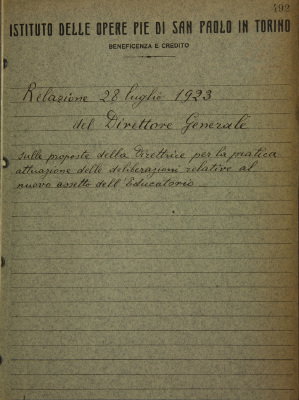 492
ISTITUTO DELLE OPERE PIE DI SAN PAOLO IN TORINO
BENEFICENZA E CREDITO
Relazione 28 luglio 1923
del Direttore Generale
sulle proposte della Direttrice per la pratica
attuazione delle deliberazioni relative al
nuovo assetto dell'Educatorio